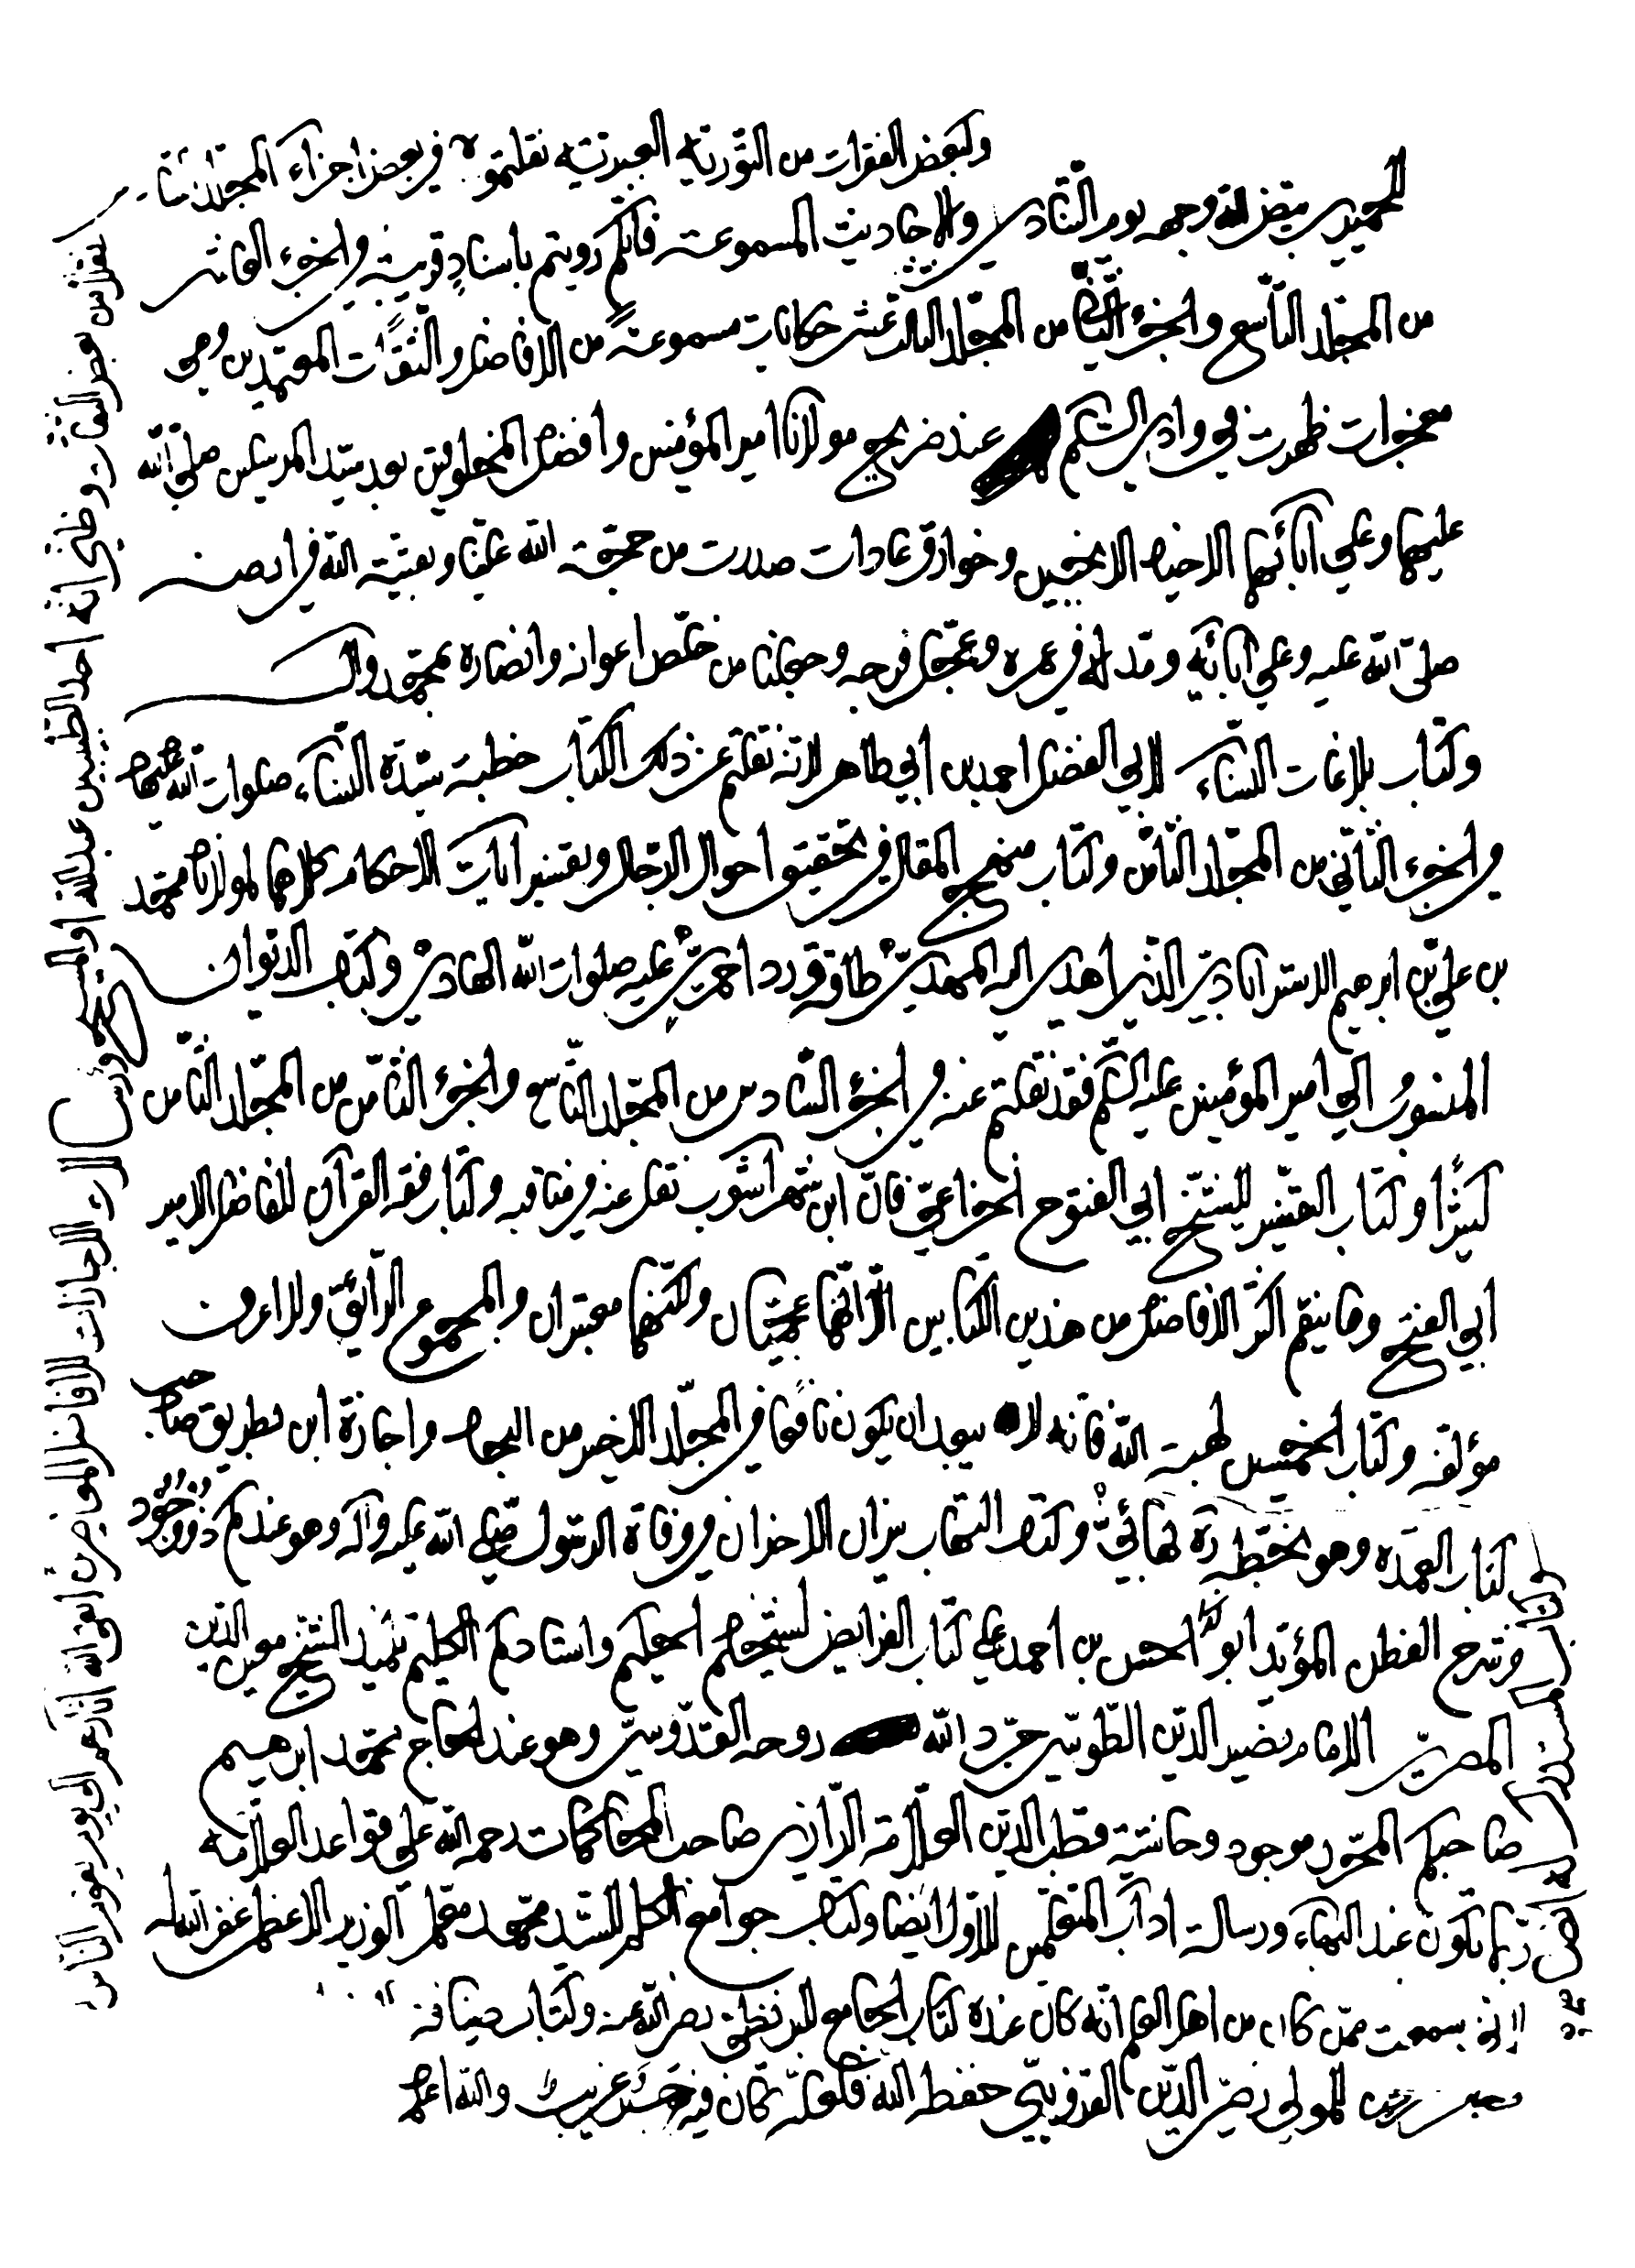 وكبعض الفقرات من التورية العبرية نقلتموه في بعض اجزاء المجلدات
للحميدي بيض الله وجهه يوم التنادي والاحاديث المسموعة فانكم رويتم باسناد قريبة في الجزء العاشر
من المجلد التاسع والجزء الثاني من المجلد الثالث عشر حكايات مسموعة من الافاضل والثقات المعتمدين وهي
معجزات ظهرت في وادي السلم عند ضريح مولانا امير المؤمنين وافضل المخلوقين بعد سيد المرسلين صلى الله
عليهما وعلى ابائهما الاخيار الانجبين وخوارق عادات صدرت من حجة الله علينا وبقية الله في ارضه
صلى الله عليه وعلى ابائه ومد الله في عمره وعجل فرجه وجعلنا من خلص اعوانه وانصاره بمحمد واله
وكتاب بلاغات النساء لابي الفضل احمد بن ابي طاهر لانه نقلتم عن ذلك الكتاب خطبة سيدة النساء صلوات الله عليها
في الجزء الثاني من المجلد الثامن وكتاب منهج المقال في تحقيق احوال الرجال وتفسير ايات الاحكام كلاهما لمولانا محمد
بن علي بن ابرهيم الاسترابادي الذي اهدى اليه المهدي طاقة ورد احمر عليه صلوات الله الهادي وكتاب الديوان
المنسوب الى امير المؤمنين عليه السلم فقد نقلتم عنه في الجزء السادس من المجلد التاسع والجزء الثامن من المجلد الثامن
كثيرا وكتاب التفسير للشيخ ابي الفتوح الخزاعي فان ابن شهراشوب نقل عنه في مناقبه وكتاب فقه القرآن للفاضل الامير
ابي الفتح وما ينقم اكثر الافاضل من هذين الكتابين الا انهما عجميان ولكنهما معتبران والمجموع الرائق ولا اعرف
مؤلفه وكتاب الخمسين لهبة الله فانه لا يبعد ان يكون نافعا في المجلد الاخير من البحار واجازة ابن بطريق صاحب
كتاب العمدة وهو بخطه رة بهائي وكتاب التهاب نيران الاحزان في وفاة الرسول صلى الله عليه واله وهو عندكم موجود
وشرح الفطن المؤيد ابو الحسن بن احمد على كتاب الفرايض لشيخكم الحكيم واستادكم الكليم تلميذ الشيخ معين الدين
المصري الامام نصير الدين الطوسي جرد الله روحه القدوسي وهو عند الحاج محمد ابرهيم
صاحبكم المحرر موجود وحاشية قطب الدين العلامة الرازي صاحب المحاكمات رحمه الله على قواعد العلامة
ربما تكون عند البهاء ورسالة اداب المتعلمين للاول ايضا وكتاب جوامع الكلم للسيد محمد معلم الوزير الاعظم غفر الله له
اني سمعت ممن كان من اهل العلم انه كان عنده كتاب الجامع للبزنطي رضي الله عنه وكتاب ضيافة
للمولى رضي الدين القزويني حفظه الله فلعله كان فيه حديث غريب والله اعلم
نقلا من بعض الثقات وظني انه احد الطبيبين عبد الله او المسيح
الاجازات للافاضل المعاصرين ابقى الله اثاركم الى يوم يقوم الناس